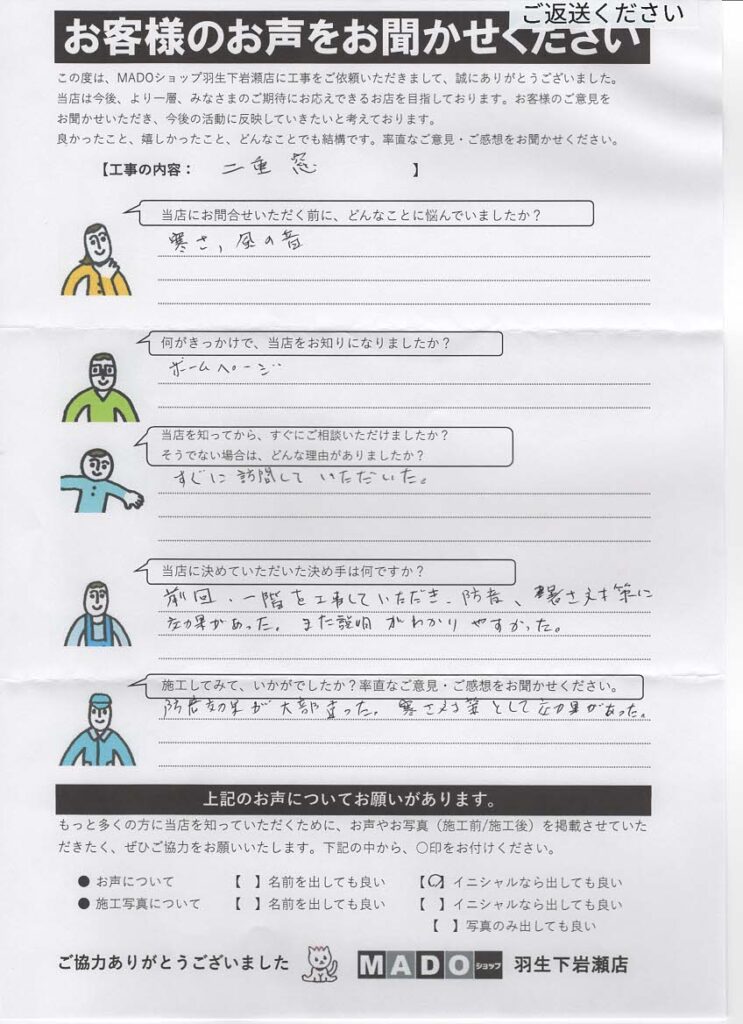 ご返送ください
お客様のお声をお聞かせください
この度は、MADOショップ羽生下岩瀬店に工事をご依頼いただきまして、誠にありがとうございました。
当店は今後、より一層、みなさまのご期待にお応えできるお店を目指しております。お客様のご意見を
お聞かせいただき、今後の活動に反映していきたいと考えております。
良かったこと、嬉しかったこと、どんなことでも結構です。率直なご意見・ご感想をお聞かせください。
【工事の内容： 二重窓 】
当店にお問合せいただく前に、どんなことに悩んでいましたか？
寒さ，風の音
何がきっかけで、当店をお知りになりましたか？
ホームページ
当店を知ってから、すぐにご相談いただけましたか？
そうでない場合は、どんな理由がありましたか？
すぐに訪問していただいた。
当店に決めていただいた決め手は何ですか？
前回、一階を工事していただき、防音、暑さ対策に
効果があった。また説明がわかりやすかった。
施工してみて、いかがでしたか？率直なご意見・ご感想をお聞かせください。
防音効果が大部違った。寒さ対策として効果があった。
上記のお声についてお願いがあります。
もっと多くの方に当店を知っていただくために、お声やお写真（施工前/施工後）を掲載させていた
だきたく、ぜひご協力をお願いいたします。下記の中から、〇印をお付けください。
● お声について 【 】名前を出しても良い 【〇】イニシャルなら出しても良い
● 施工写真について 【 】名前を出しても良い 【 】イニシャルなら出しても良い
【 】写真のみ出しても良い
ご協力ありがとうございました MADOショップ 羽生下岩瀬店